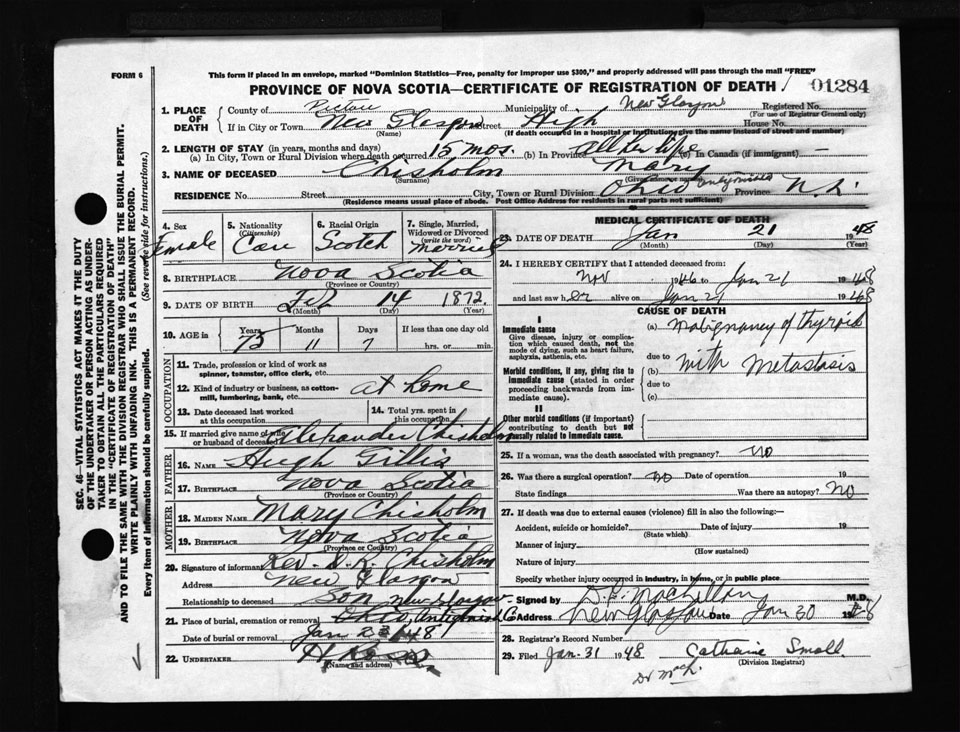 FORM 6
This form if placed in an envelope, marked "Dominion Statistics—Free, penalty for improper use $300," and properly addressed will pass through the mail "FREE"
PROVINCE OF NOVA SCOTIA—CERTIFICATE OF REGISTRATION OF DEATH
01284
1. PLACE OF DEATH
County of Pictou Municipality of New Glasgow Registered No.
(For use of Registrar General only)
If in City or Town New Glasgow Street High House No.
(Name) (If death occurred in a hospital or institution give the name instead of street and number)
2. LENGTH OF STAY (in years, months and days)
(a) In City, Town or Rural Division where death occurred 15 mos. (b) In Province all her life (c) In Canada (if immigrant) —
3. NAME OF DECEASED Chisholm Mary
(Surname) (Given
RESIDENCE No. Street City, Town or Rural Division Ohio Antigonish Province N.S.
(Residence means usual place of abode. Post Office Address for residents in rural parts not sufficient)
4. Sex Female
5. Nationality (Citizenship) Can
6. Racial Origin Scotch
7. Single, Married, Widowed or Divorced (write the word) Married
8. BIRTHPLACE Nova Scotia
(Province or Country)
9. DATE OF BIRTH Feb 14 1872
(Month) (Day) (Year)
10. AGE in Years 75 Months 11 Days 7 If less than one day old hrs. or min.
OCCUPATION
11. Trade, profession or kind of work as spinner, teamster, office clerk, etc.
12. Kind of industry or business, as cotton-mill, lumbering, bank, etc. at home
13. Date deceased last worked at this occupation
14. Total yrs. spent in this occupation
15. If married give name of wife or husband of deceased Alexander Chisholm
FATHER
16. NAME Hugh Gillis
17. BIRTHPLACE Nova Scotia
(Province or Country)
MOTHER
18. MAIDEN NAME Mary Chisholm
19. BIRTHPLACE Nova Scotia
(Province or Country)
20. Signature of informant Rev. D. R. Chisholm
Address New Glasgow
Relationship to deceased Son New Glasgow
21. Place of burial, cremation or removal Ohio, Antigonish Co
Date of burial or removal Jan 23/48
22. UNDERTAKER H
(Name and address)
MEDICAL CERTIFICATE OF DEATH
23. DATE OF DEATH Jan 21 1948
(Month) (Day) (Year)
24. I HEREBY CERTIFY that I attended deceased from:
Nov 1946 to Jan 21 1948
and last saw her alive on Jan 21 1948
CAUSE OF DEATH
I
Immediate cause
Give disease, injury or complication which caused death, not the mode of dying, such as heart failure, asphyxia, asthenia, etc.
(a) Malignancy of thyroid
due to with Metastasis
Morbid conditions, if any, giving rise to immediate cause (stated in order proceeding backwards from immediate cause).
(b)
due to
(c)
II
Other morbid conditions (if important) contributing to death but not causally related to immediate cause.
25. If a woman, was the death associated with pregnancy? no
26. Was there a surgical operation? no Date of operation 19
State findings Was there an autopsy? No
27. If death was due to external causes (violence) fill in also the following:—
Accident, suicide or homicide? Date of injury 19
(State which)
Manner of injury
(How sustained)
Nature of injury
Specify whether injury occurred in industry, in home, or in public place
Signed by M.D.
Address New Glasgow Date Jan 30 1948
28. Registrar's Record Number
29. Filed Jan. 31 1948 Catharine Small
(Division Registrar)
SEC. 46—VITAL STATISTICS ACT MAKES IT THE DUTY
OF THE UNDERTAKER OR PERSON ACTING AS UNDER-
TAKER TO OBTAIN ALL THE PARTICULARS REQUIRED
IN THE "CERTIFICATE OF REGISTRATION OF DEATH"
AND TO FILE THE SAME WITH THE DIVISION REGISTRAR WHO SHALL ISSUE THE BURIAL PERMIT.
WRITE PLAINLY WITH UNFADING INK. THIS IS A PERMANENT RECORD.
Every item of information should be carefully supplied. (See reverse side for instructions.)